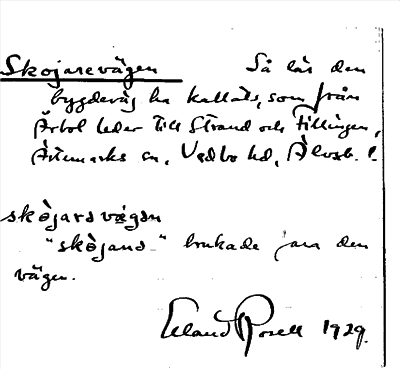 Skojarevägen Så lär den
bygdeväg ha kallats, som från
Årbol leder till Strand och Fillingen,
Ärtemarks sn, Vedbo hd, Älvsb. l.
skòjara vägən
"skòjand-" brukade fara den
vägen.
Erland Rosell 1929.